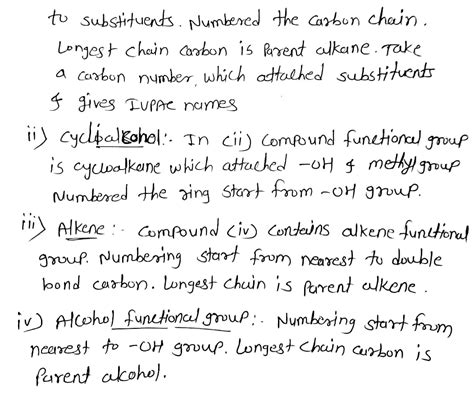 to substituents. Numbered the carbon chain.
Longest chain carbon is Parent alkane. Take
a carbon number, which attached substituents
& gives IUPAC names
ii) Cycloalcohol:- In (ii) Compound functional group
is cycloalkane which attached -OH & methyl group
Numbered the ring start from -OH group.
iii) Alkene :- Compound (iv) Contains alkene functional
group. Numbering start from nearest to double
bond carbon. Longest chain is Parent alkene.
iv) Alcohol functional group:- Numbering start from
nearest to -OH group. Longest chain carbon is
Parent alcohol.